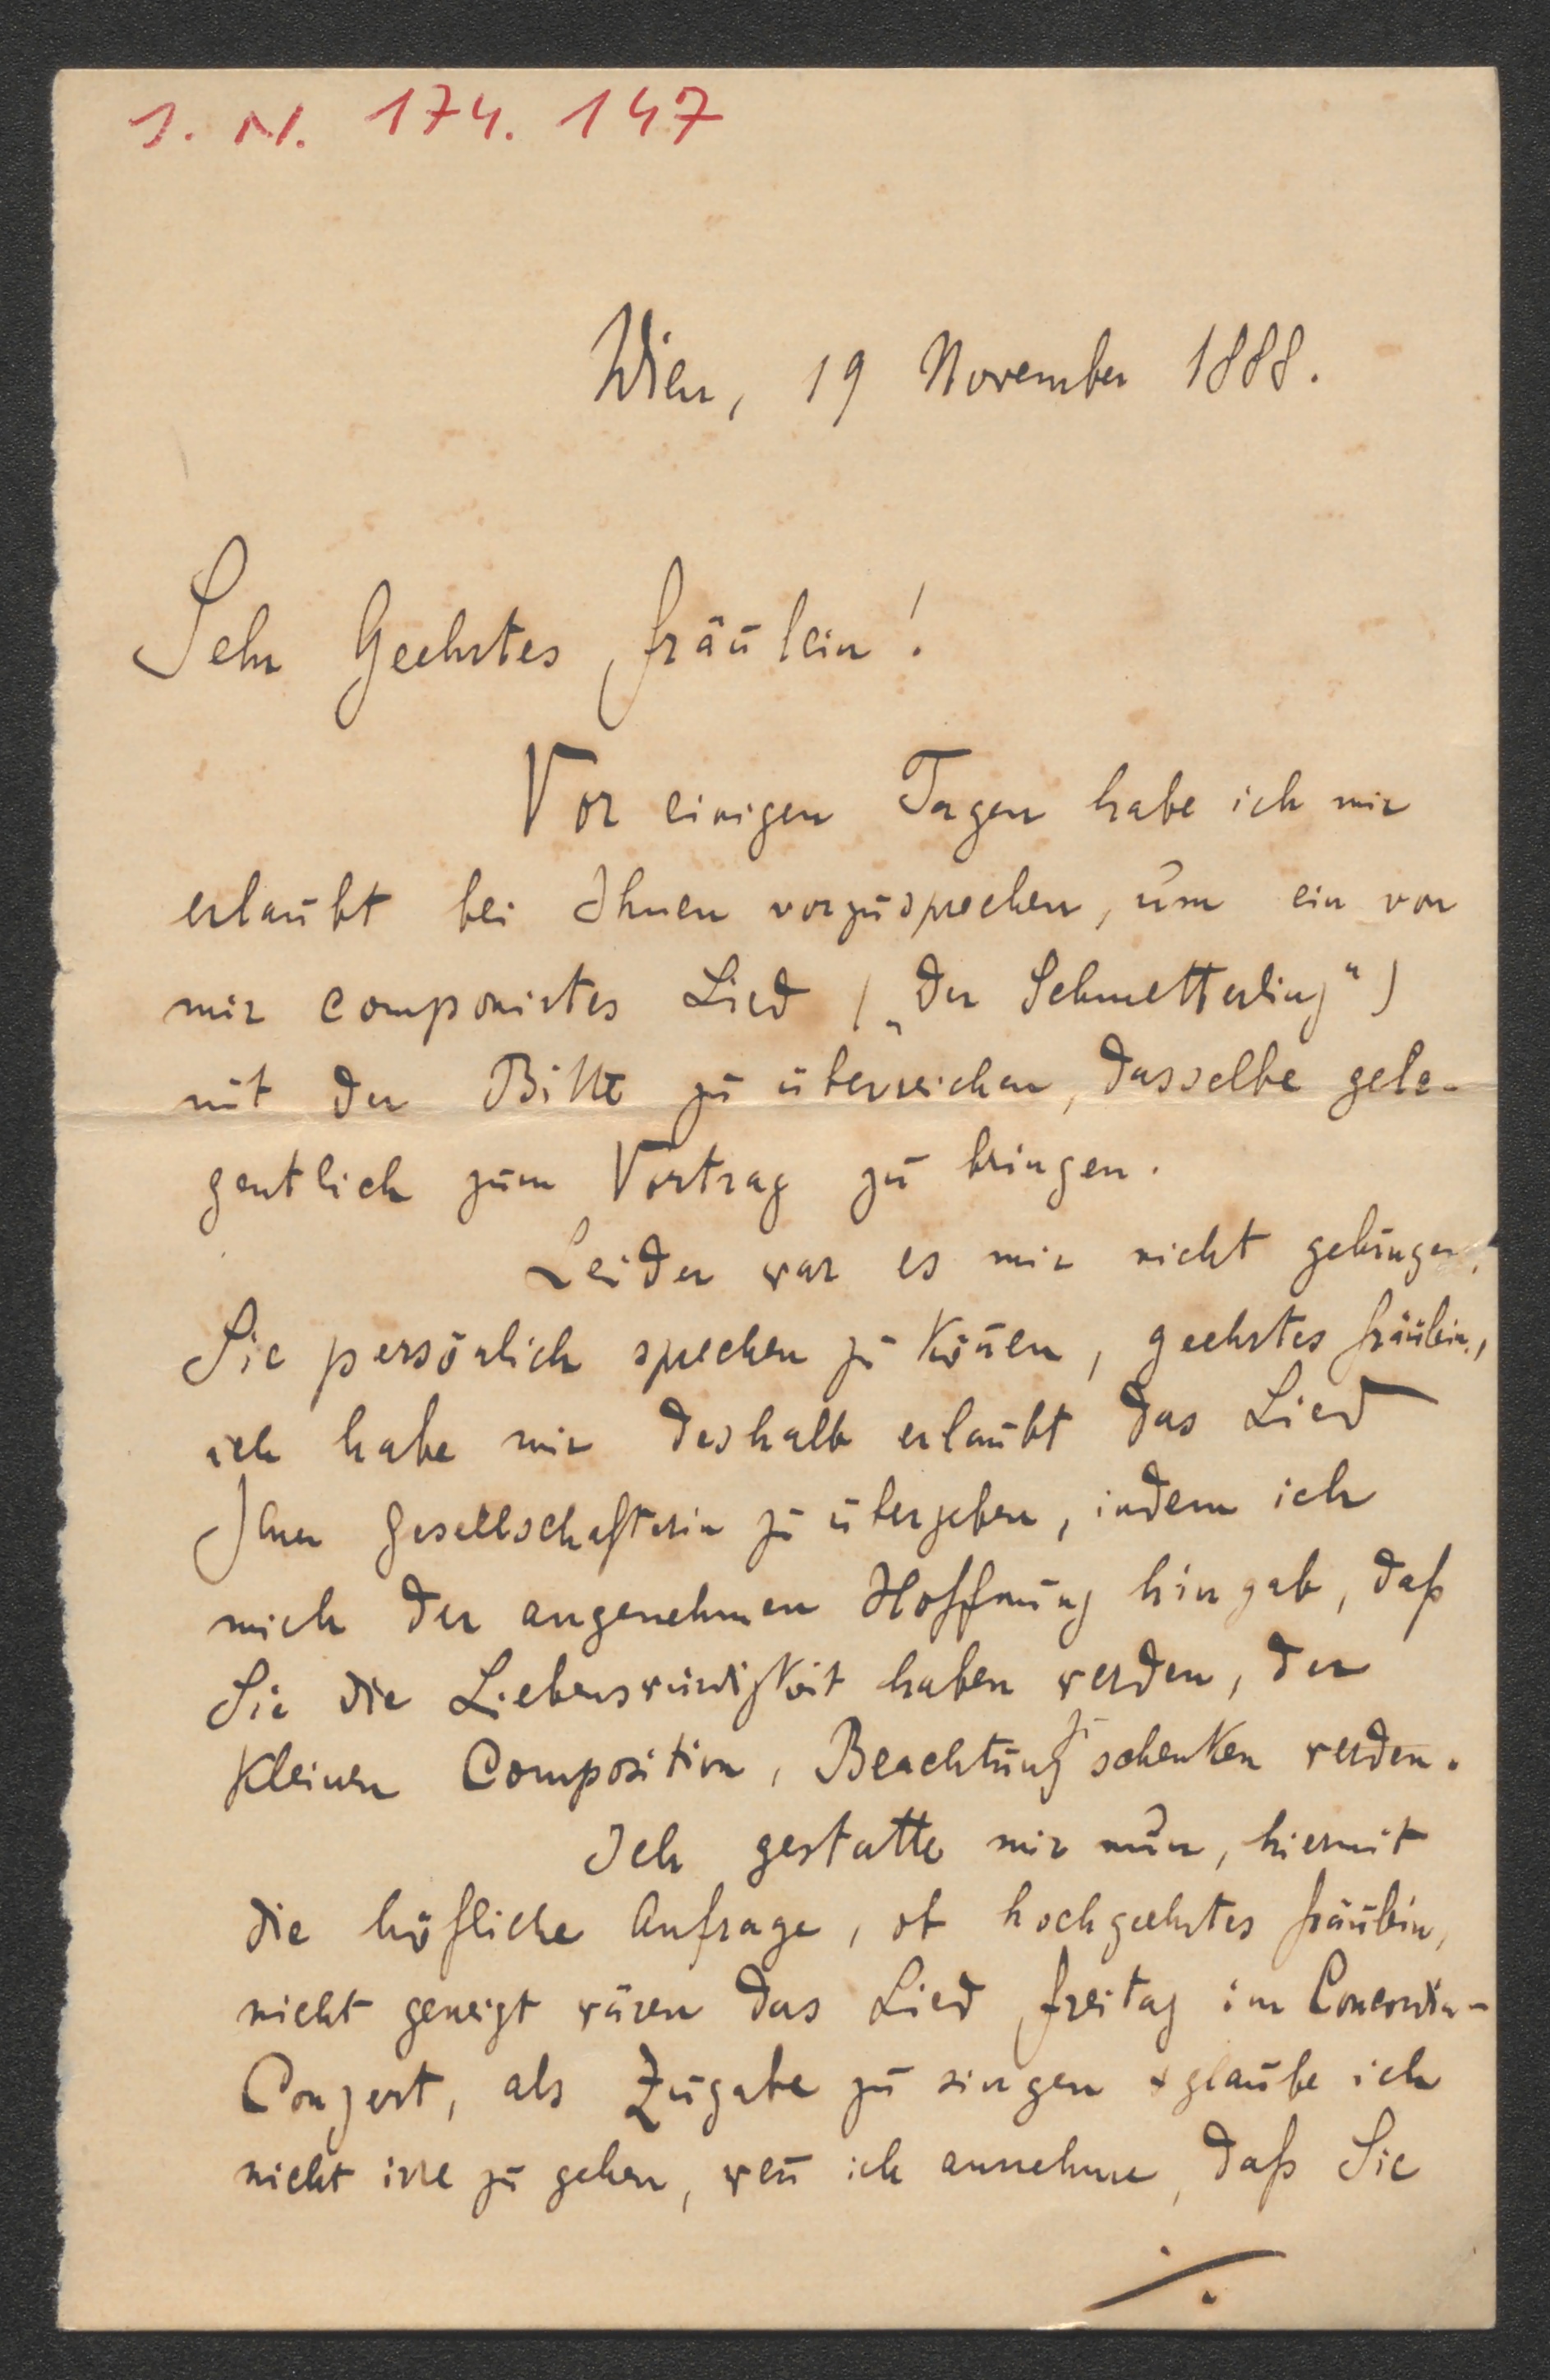 J. N. 174.147
Wien, 19 November 1888.
Sehr Geehrtes Fräulein!
Vor einigen Tagen habe ich mir
erlaubt bei Ihnen vorzusprechen, um ein von
mir componirtes Lied („Der Schmetterling“)
mit der Bitte zu überreichen, dasselbe gele-
gentlich zum Vortrag zu bringen.
Leider war es mir nicht gelungen,
Sie persönlich sprechen zu kön̄en, geehrtes Fräulein,
ich habe mir deshalb erlaubt das Lied
Ihrer Gesellschafterin zu übergeben, indem ich
mich der angenehmen Hoffnung hingab, daß
Sie die Liebenswürdigkeit haben werden, der
kleinen Composition, Beachtung zu schenken werden.
Ich gestatte mir nun, hiermit
die höfliche Anfrage, ob hochgeehrtes Fräulein,
nicht geneigt wären das Lied Freitag im Concordia-
Conzert, als Zugabe zu singen & glaube ich
nicht irre zu gehen, wen̄ ich annehme, daß Sie
./.